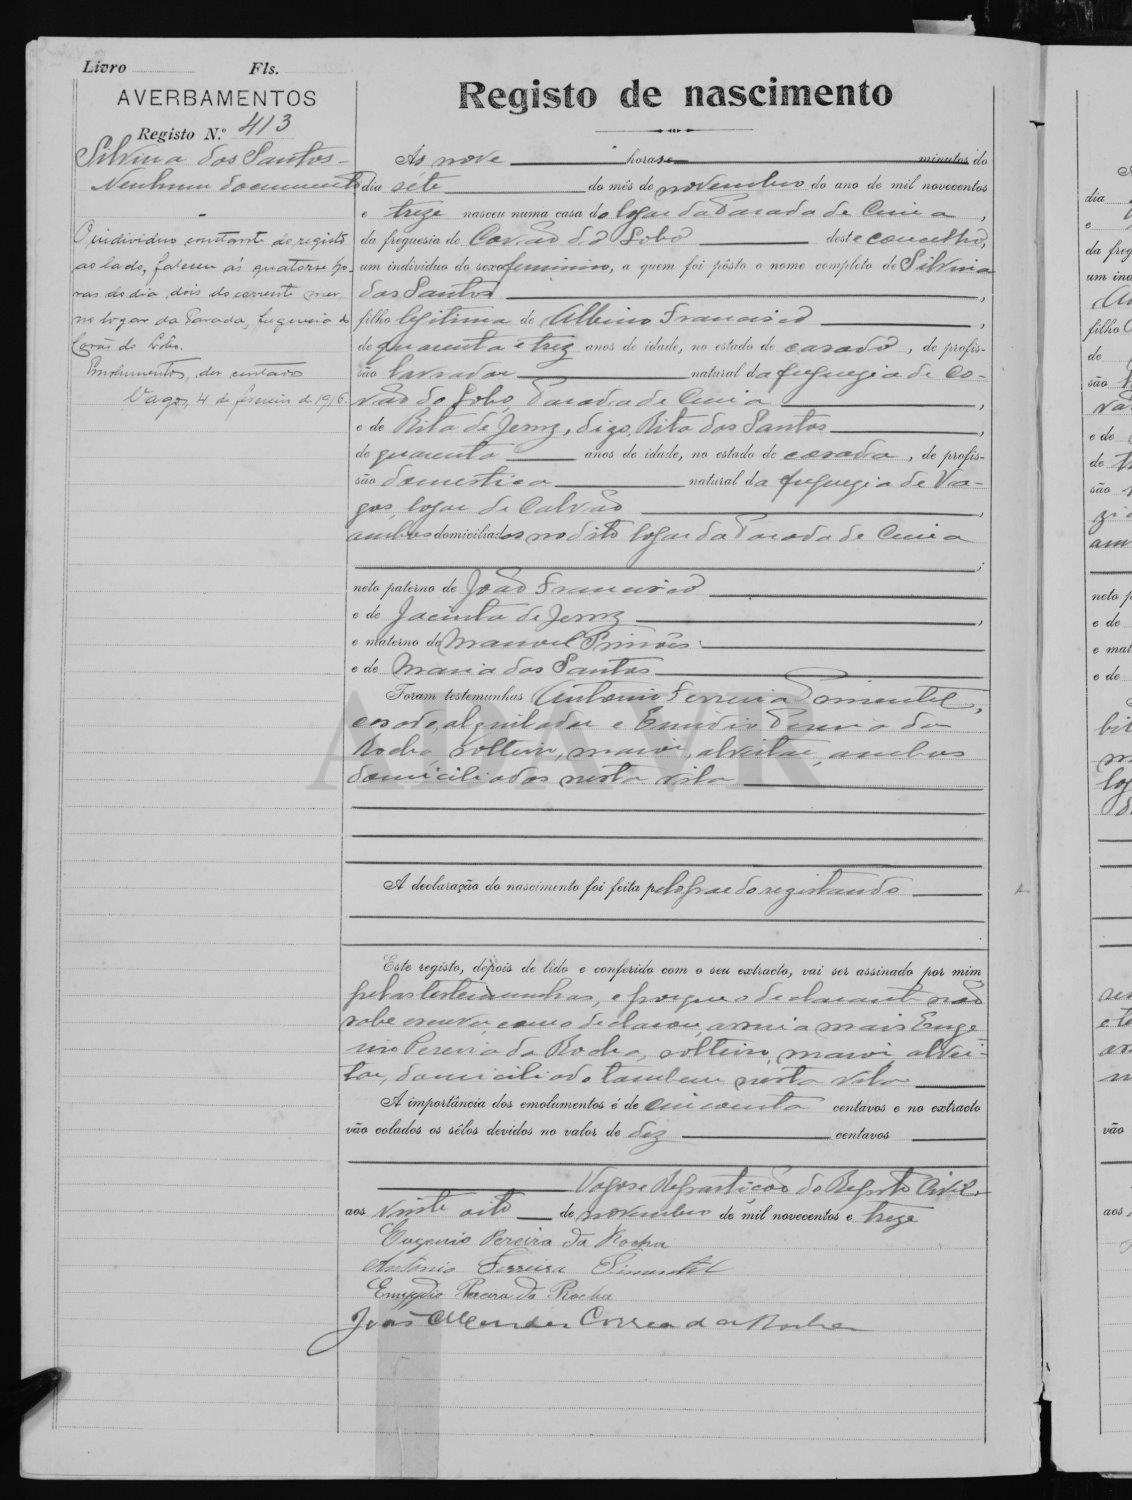 Livro Fls.
AVERBAMENTOS
Registo N.º 413
Silvina dos Santos
Nenhum documento
O individuo constante do registo
ao lado, faleceu ás quatorze ho-
ras do dia dois do corrente mez
no logar da Parada, freguesia de
Covão do Lobo.
Emolumentos, dez centavos
Vagos, 4 de fevereiro de 1916.
Registo de nascimento
Ás nove horas e minutos do
dia séte do mês de novembro do ano de mil novecentos
e treze nasceu numa casa do logar da Parada de Cima,
da freguesia de Covão do Lobo deste concelho,
um individuo do sexo feminino, a quem foi pôsto o nome completo de Silvina
dos Santos,
filho legitima de Albino Francisco,
de quarenta e trez anos de idade, no estado de casado, de profis-
são lavrador natural da freguezia de Co-
vão do Lobo, Parada de Cima,
e de Rita de Jesus, digo, Rita dos Santos,
de quarenta anos de idade, no estado de casada, de profis-
são domestica natural da freguezia de Va-
gos, logar de Calvão,
ambos domiciliados no dito logar da Parada de Cima
;
neto paterno de João Francisco
e de Jacinta de Jesus,
e materno de Manoel Simões
e de Maria dos Santos
Foram testemunhas Antonio Ferreira Pimentel,
casado, alquilador e Emidio Pereira da
Rocha, solteiro, maior, alveitar, ambos
domiciliados nesta vila
ADAVR
A declaração do nascimento foi feita pelo pae do registando
Este registo, depois de lido e conferido com o seu extracto, vai ser assinado por mim
pelas testemunhas, e porque o declarante não
sabe escrever, como declarou, assina mais Euge-
nio Pereira da Rocha, solteiro, maior, alvei-
tar, domiciliado tambem nesta vila
A importância dos emolumentos é de cincoenta centavos e no extracto
vão colados os sêlos devidos no valor de dez centavos
Vagos e Repartição do Registo Civil
aos vinte oito de novembro de mil novecentos e treze
Eugenio Pereira da Rocha
Antonio Ferreira Pimentel
Emygdio Pereira da Rocha
João Mendes Correa da Rocha